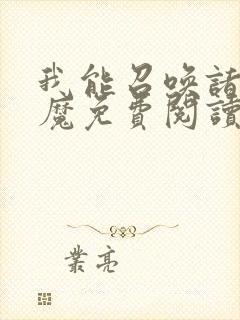 我能召喚諸
魔免費閱讀
葉亮